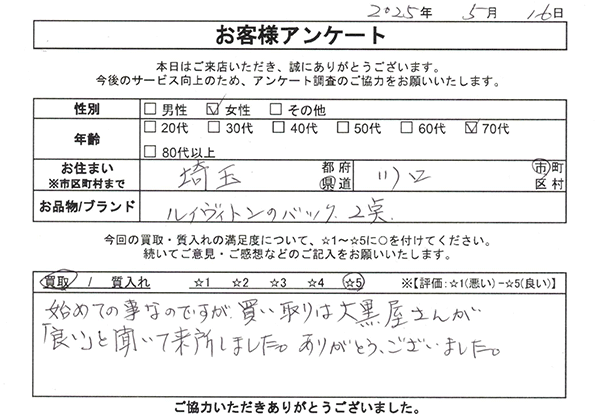 2025年 5月 16日
お客様アンケート
本日はご来店いただき、誠にありがとうございます。
今後のサービス向上のため、アンケート調査のご協力をお願いいたします。
性別 □ 男性 ☑ 女性 □ その他
年齢 □ 20代 □ 30代 □ 40代 □ 50代 □ 60代 ☑ 70代
□ 80代以上
お住まい ※市区町村まで 埼玉 都府県道 川口 市町区村
お品物/ブランド ルイヴィトンのバック 2点
今回の買取・質入れの満足度について、☆1～☆5に○を付けてください。
続いてご意見・ご感想などのご記入をお願いいたします。
買取 / 質入れ ☆1 ☆2 ☆3 ☆4 ☆5 ※【評価:☆1(悪い)−☆5(良い)】
始めての事なのですが、買い取りは大黒屋さんが
「良い」と聞いて来所しました。ありがとう、ございました。
ご協力いただきありがとうございました。